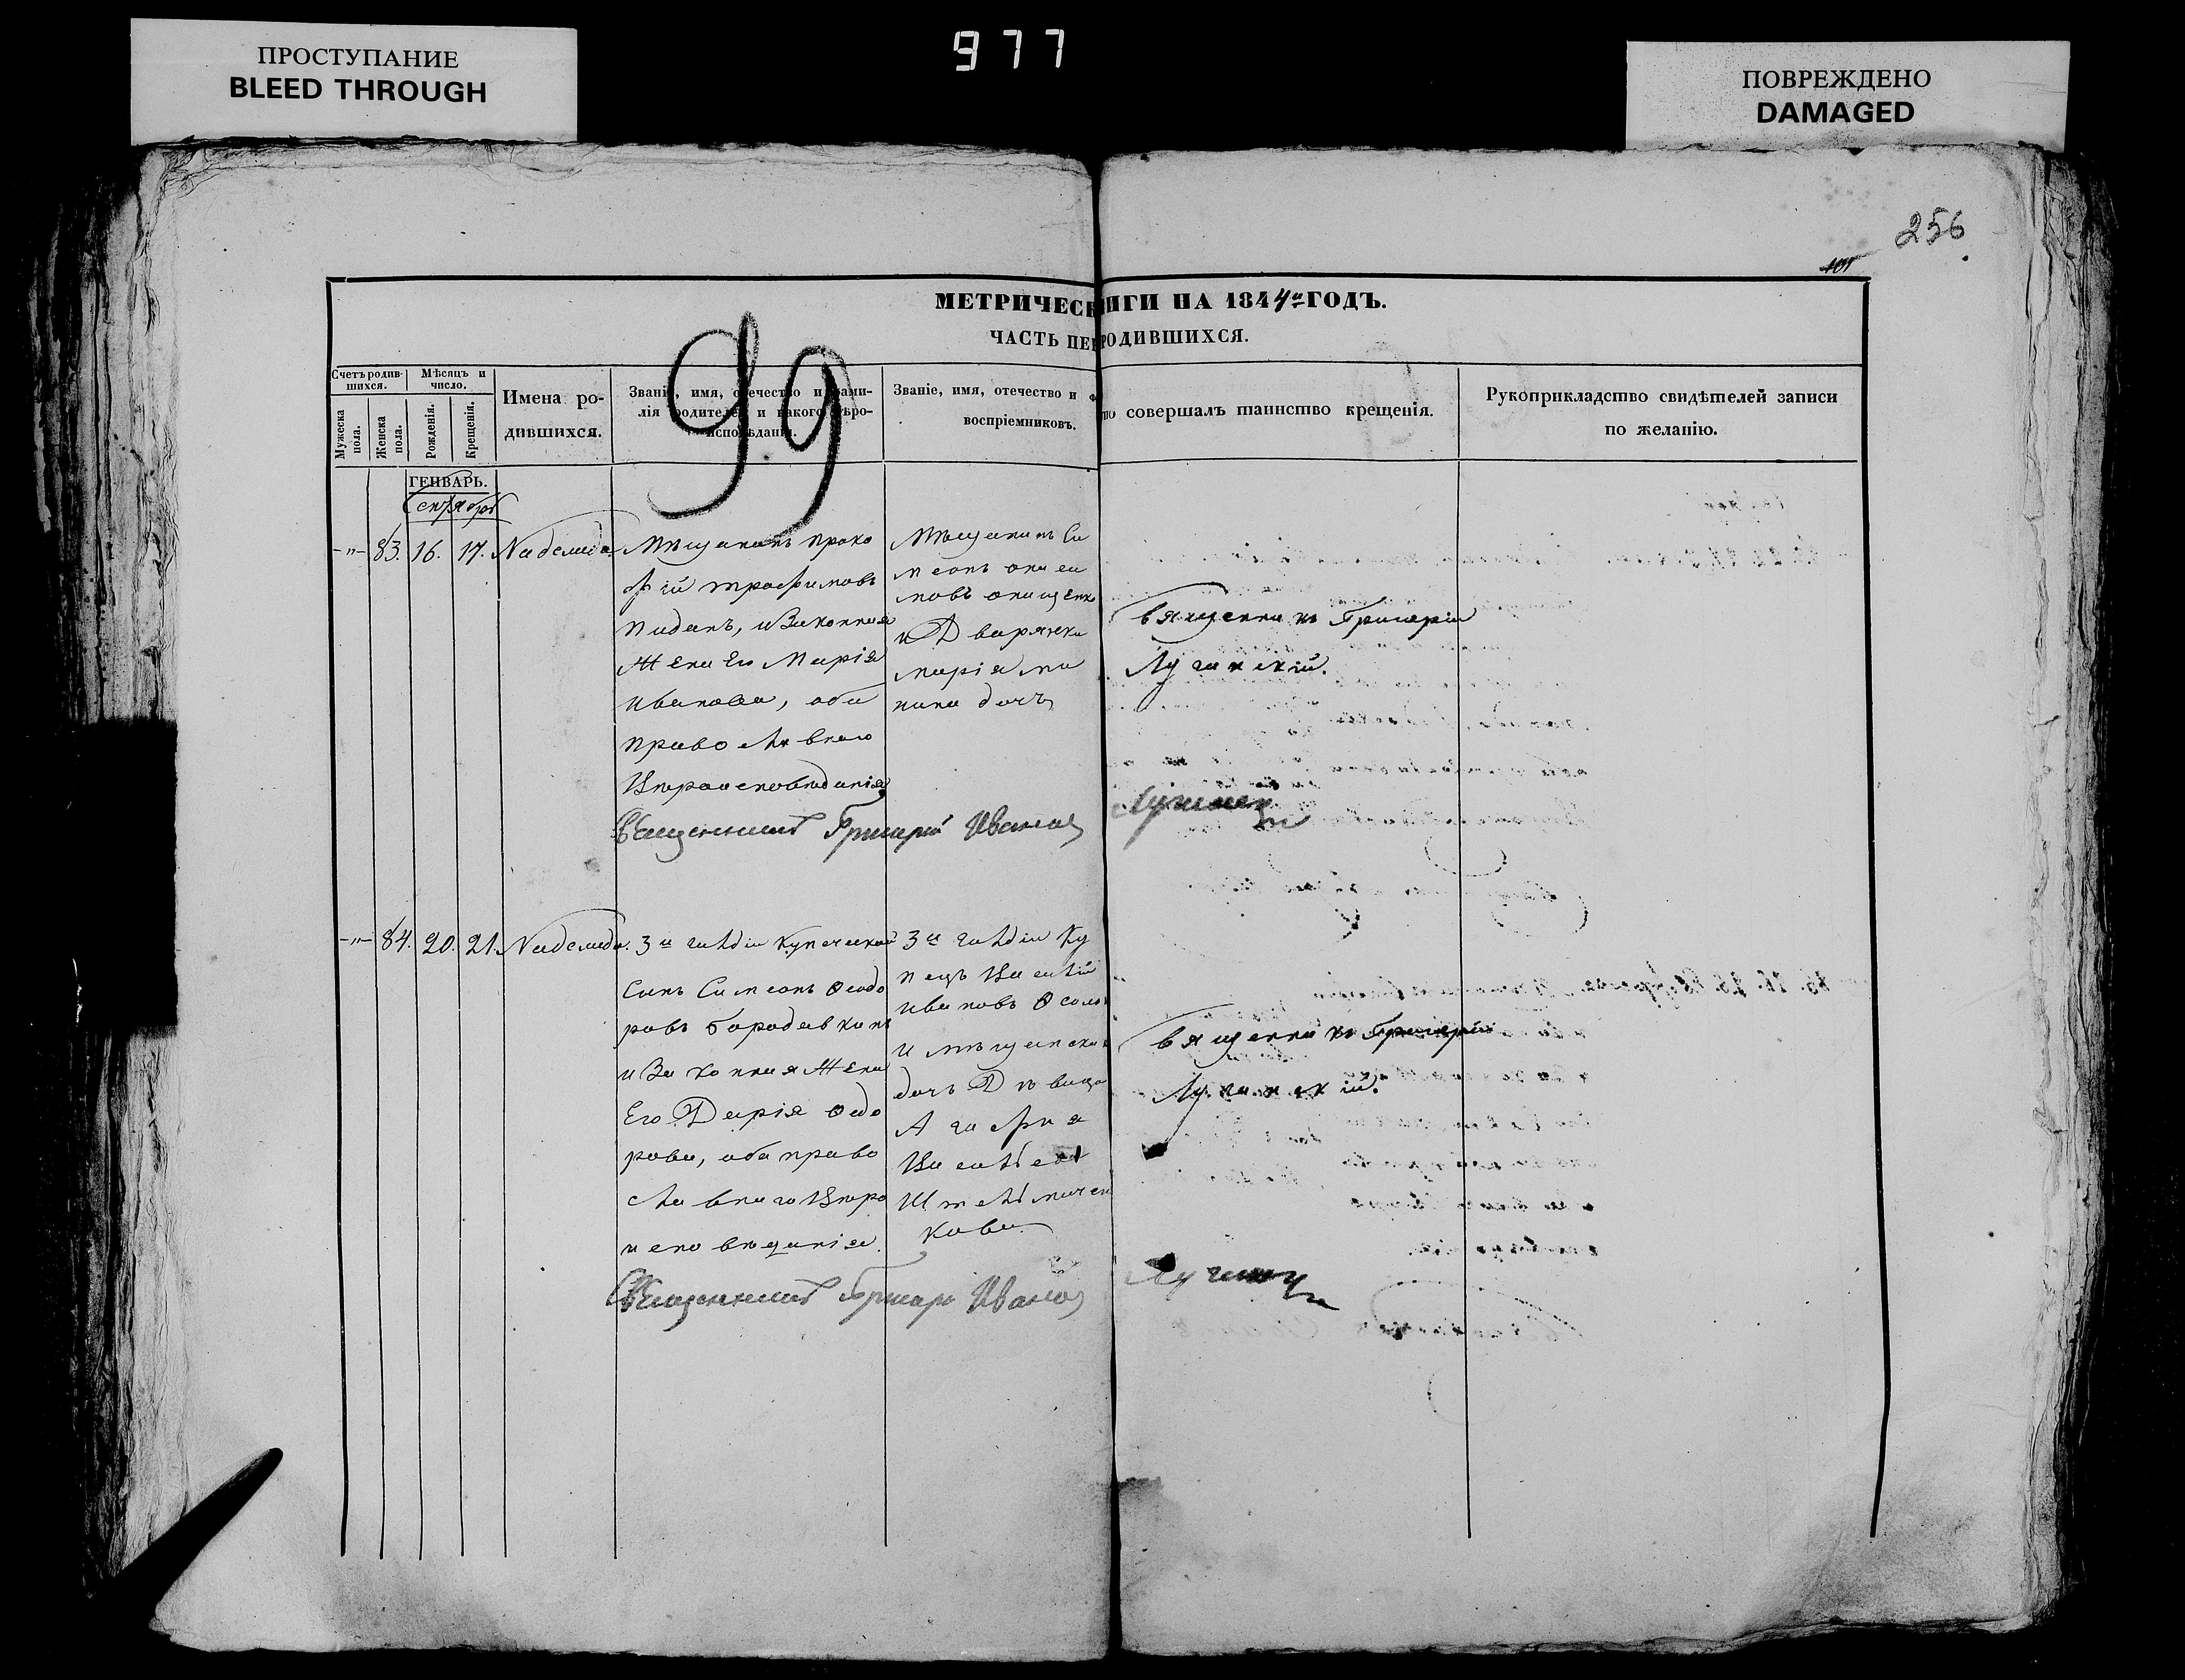 ПРОСТУПАНИЕ
BLEED THROUGH
977
ПОВРЕЖДЕНО
DAMAGED
256
101
МЕТРИЧЕСК ИГИ НА 1844й ГОДЪ.
ЧАСТЬ ПЕР РОДИВШИХСЯ.
99
Счетъ родив-
шихся.
Мужеска
пола.
Женска
пола.
Мѣсяцъ и
число.
Рожденія.
Крещенія.
Имена ро-
дившихся.
Званіе, имя, отечество и фами-
лія родителей и какого вѣро-
исповѣданія.
Званіе, имя, отечество и ф
воспріемниковъ.
то совершалъ таинство крещенія.
Рукоприкладство свидѣтелей записи
по желанію.
ГЕНВАРЬ.
Сентябрь
-"- 83. 16. 17. Надежда.
Мѣщанинъ Проко
фій Трофимовъ
и Законная
Жена Его Марія
Иванова, оба
Православнаго
Вѣроисповѣданія
Мѣщанинъ Си
меонъ Аниси
мовъ Онищенко
и Дворянка
Марія
дочь
Священникъ Григорій
Лучинскій.
Священникъ Григорій Иванов Лучинск
-"- 84. 20. 21. Надежда.
3й гильдіи Купеческій
Сынъ Симеонъ Ѳеодо
ровъ Бородавкинъ
и Законная Жена
Его Дарія Ѳедо
рова, оба право
славнаго Вѣро
исповѣданія.
3й гильдіи Ку
пецъ Василій
Ивановъ
и мѣщанская
дочь Дѣвица
Агафія
Васильева
кова.
Священникъ Григорій
Лучинскій.
Священникъ Григорій Иванов